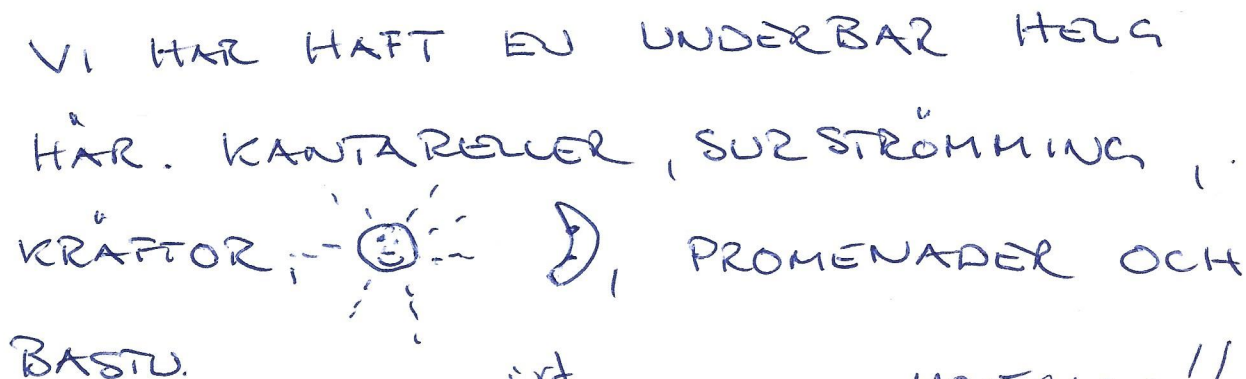 VI HAR HAFT EN UNDERBAR HELG
HÄR. KANTARELLER, SURSTRÖMMING,
KRÄFTOR, , PROMENADER OCH
BASTU.